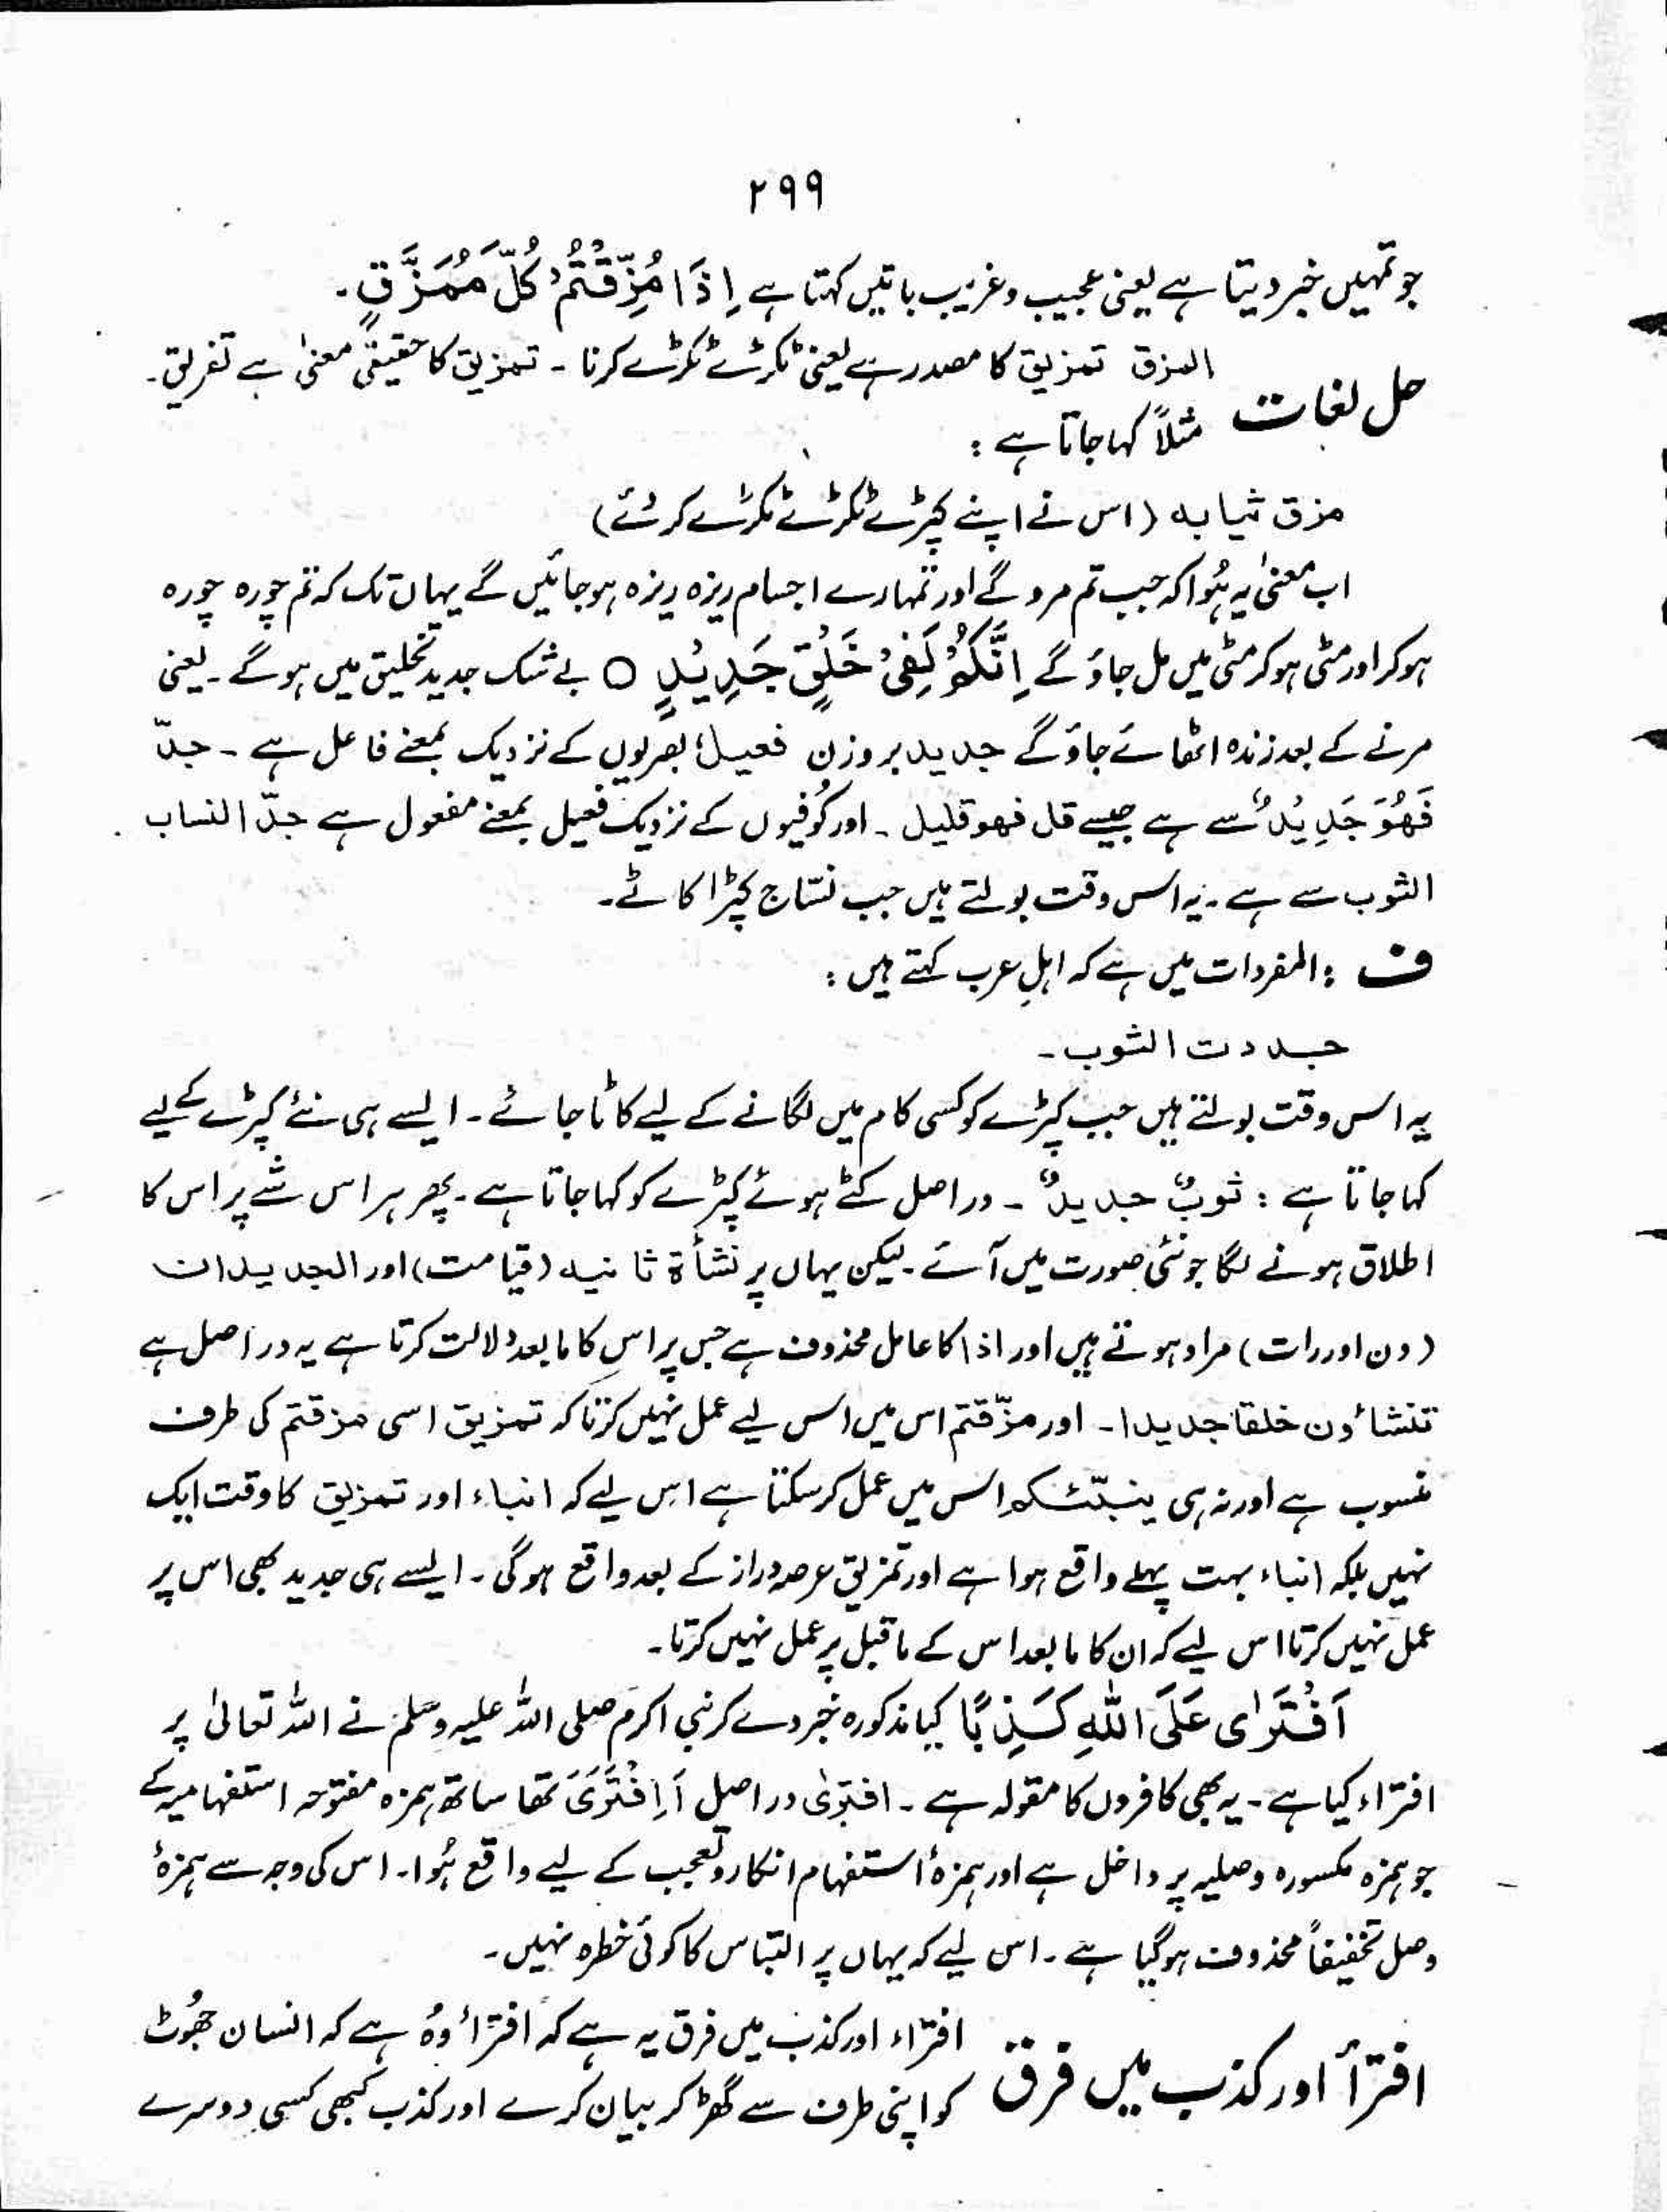 ۲۹۹
جو تمہیں خبر دیتا ہے یعنی عجیب و غریب باتیں کہتا ہے اِذَا مُزِّقْتُمْ كُلَّ مُمَزَّقٍ۔
حل لغات
المزق تمزیق کا مصدر ہے یعنی ٹکڑے ٹکڑے کرنا ۔ تمزیق کا حقیقی معنیٰ ہے تفریق۔
مثلاً کہا جاتا ہے :
مزق ثیابہ (اس نے اپنے کپڑے ٹکڑے ٹکڑے کر دئے)
اب معنیٰ یہ ہُوا کہ جب تم مرو گے اور تمہارے اجسام ریزہ ریزہ ہوجائیں گے یہاں تک کہ تم چورہ چورہ
ہوکر اور مٹی ہوکر مٹی میں مل جاؤ گے اِنَّكُمْ لَفِیْ خَلْقٍ جَدِیْدٍ ○ بے شک جدید تخلیق میں ہوگے ۔ یعنی
مرنے کے بعد زندہ اٹھائے جاؤ گے جدید بروزن فعیل بصریوں کے نزدیک بمعنے فاعل ہے ۔ جدّ
فَهُوَ جَدِیْدٌ سے ہے جیسے قل فھو قلیل ۔ اور کُوفیوں کے نزدیک فعیل بمعنے مفعول ہے جدّ النساب
الثوب سے ہے ۔ یہ اس وقت بولتے ہیں جب نسّاج کپڑا کاٹے۔
ف : المفردات میں ہے کہ اہلِ عرب کہتے ہیں :
جددت الثوب ۔
یہ اس وقت بولتے ہیں جب کپڑے کو کسی کام میں لگانے کے لیے کاٹا جائے ۔ ایسے ہی نئے کپڑے کے لیے
کہا جاتا ہے : ثوبٌ جدیدٌ ۔ در اصل کٹے ہوئے کپڑے کو کہا جاتا ہے ۔ پھر ہر اس شے پر اس کا
اطلاق ہونے لگا جو نئی صورت میں آئے ۔ لیکن یہاں پر نشأۃ ثانیہ (قیامت) اور الجدیدان
(دن اور رات) مراد ہوتے ہیں اور اذا کا عامل محذوف ہے جس پر اس کا مابعد دلالت کرتا ہے یہ در اصل ہے
تنشاؤن خلقا جدیدا ۔ اور مزّقتم اس میں اس لیے عمل نہیں کرتا کہ تمزیق اسی مزقتم کی طرف
منسوب ہے اور نہ ہی ینبّئکم اس میں عمل کرسکتا ہے اس لیے کہ انباء اور تمزیق کا وقت ایک
نہیں بلکہ انباء بہت پہلے واقع ہوا ہے اور تمزیق عرصہ دراز کے بعد واقع ہوگی ۔ ایسے ہی جدید بھی اس پر
عمل نہیں کرتا اس لیے کہ ان کا مابعد اس کے ماقبل پر عمل نہیں کرتا ۔
اَفْتَرٰى عَلَى اللّٰهِ كَذِبًا کیا مذکورہ خبر دے کر نبی اکرم صلی اللہ علیہ وسلم نے اللہ تعالیٰ پر
افتراء کیا ہے ۔ یہ بھی کافروں کا مقولہ ہے ۔ افترٰی در اصل اَاِفْتَرَیَ تھا ساتھ ہمزہ مفتوحہ استفہامیہ کے
جو ہمزہ مکسورہ وصلیہ پر داخل ہے اور ہمزۂ استفہام انکار و تعجب کے لیے واقع ہُوا۔ اس کی وجہ سے ہمزۂ
وصل تخفیفاً محذوف ہوگیا ہے ۔ اس لیے کہ یہاں پر التباس کا کوئی خطرہ نہیں ۔
افترأ اور کذب میں فرق
افتراء اور کذب میں فرق یہ ہے کہ افترأ وُہ ہے کہ انسان جھُوٹ
کو اپنی طرف سے گھڑ کر بیان کرے اور کذب کبھی کسی دوسرے